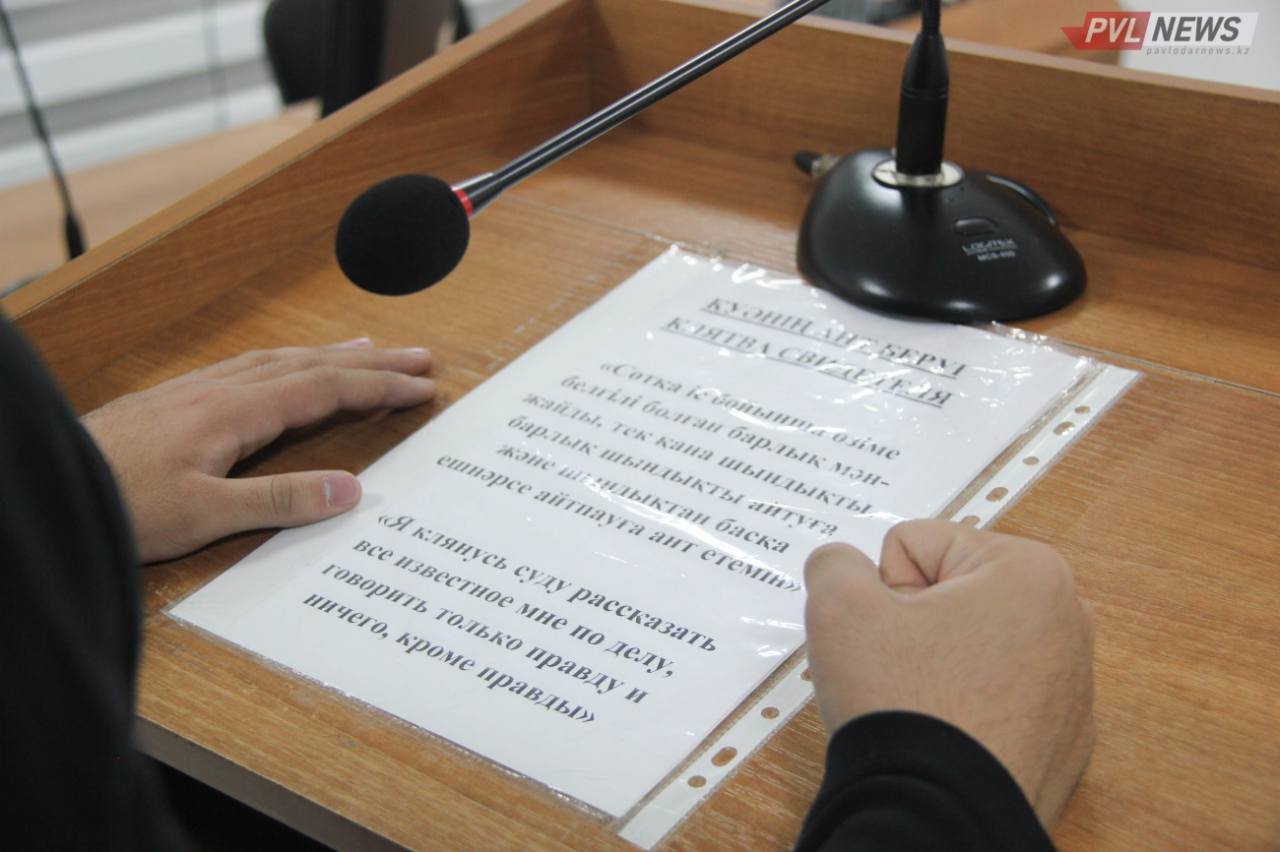 PVL NEWS
pavlodarnews.kz
LOUTEK
MCS-400
КУӘНІҢ АНТ БЕРУІ
КЛЯТВА СВИДЕТЕЛЯ
«Сотқа іс бойынша өзіме
белгілі болған барлық мән-
жайды, тек қана шындықты
барлық шындықты айтуға
және шындықтан басқа
ешнәрсе айтпауға ант етемін»
«Я клянусь суду рассказать
все известное мне по делу,
говорить только правду и
ничего, кроме правды»